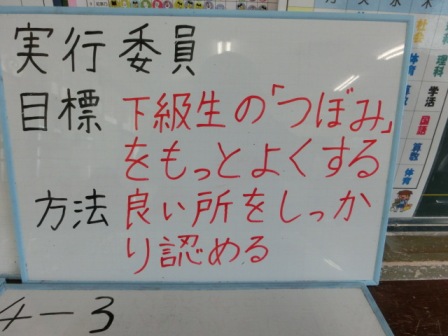 実行委員
目標 下級生の「つぼみ」
をもっとよくする
方法 良い所をしっか
り認める
4-3
体育
算数
理科
学活
国語
算数
体育